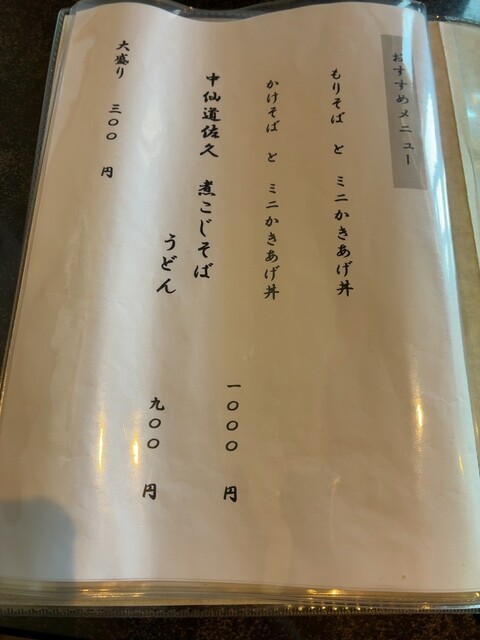 おすすめメニュー
もりそば と ミニかきあげ丼
かけそば と ミニかきあげ丼
一〇〇〇 円
中仙道佐久 煮こじそば
うどん
九〇〇 円
大盛り 三〇〇 円